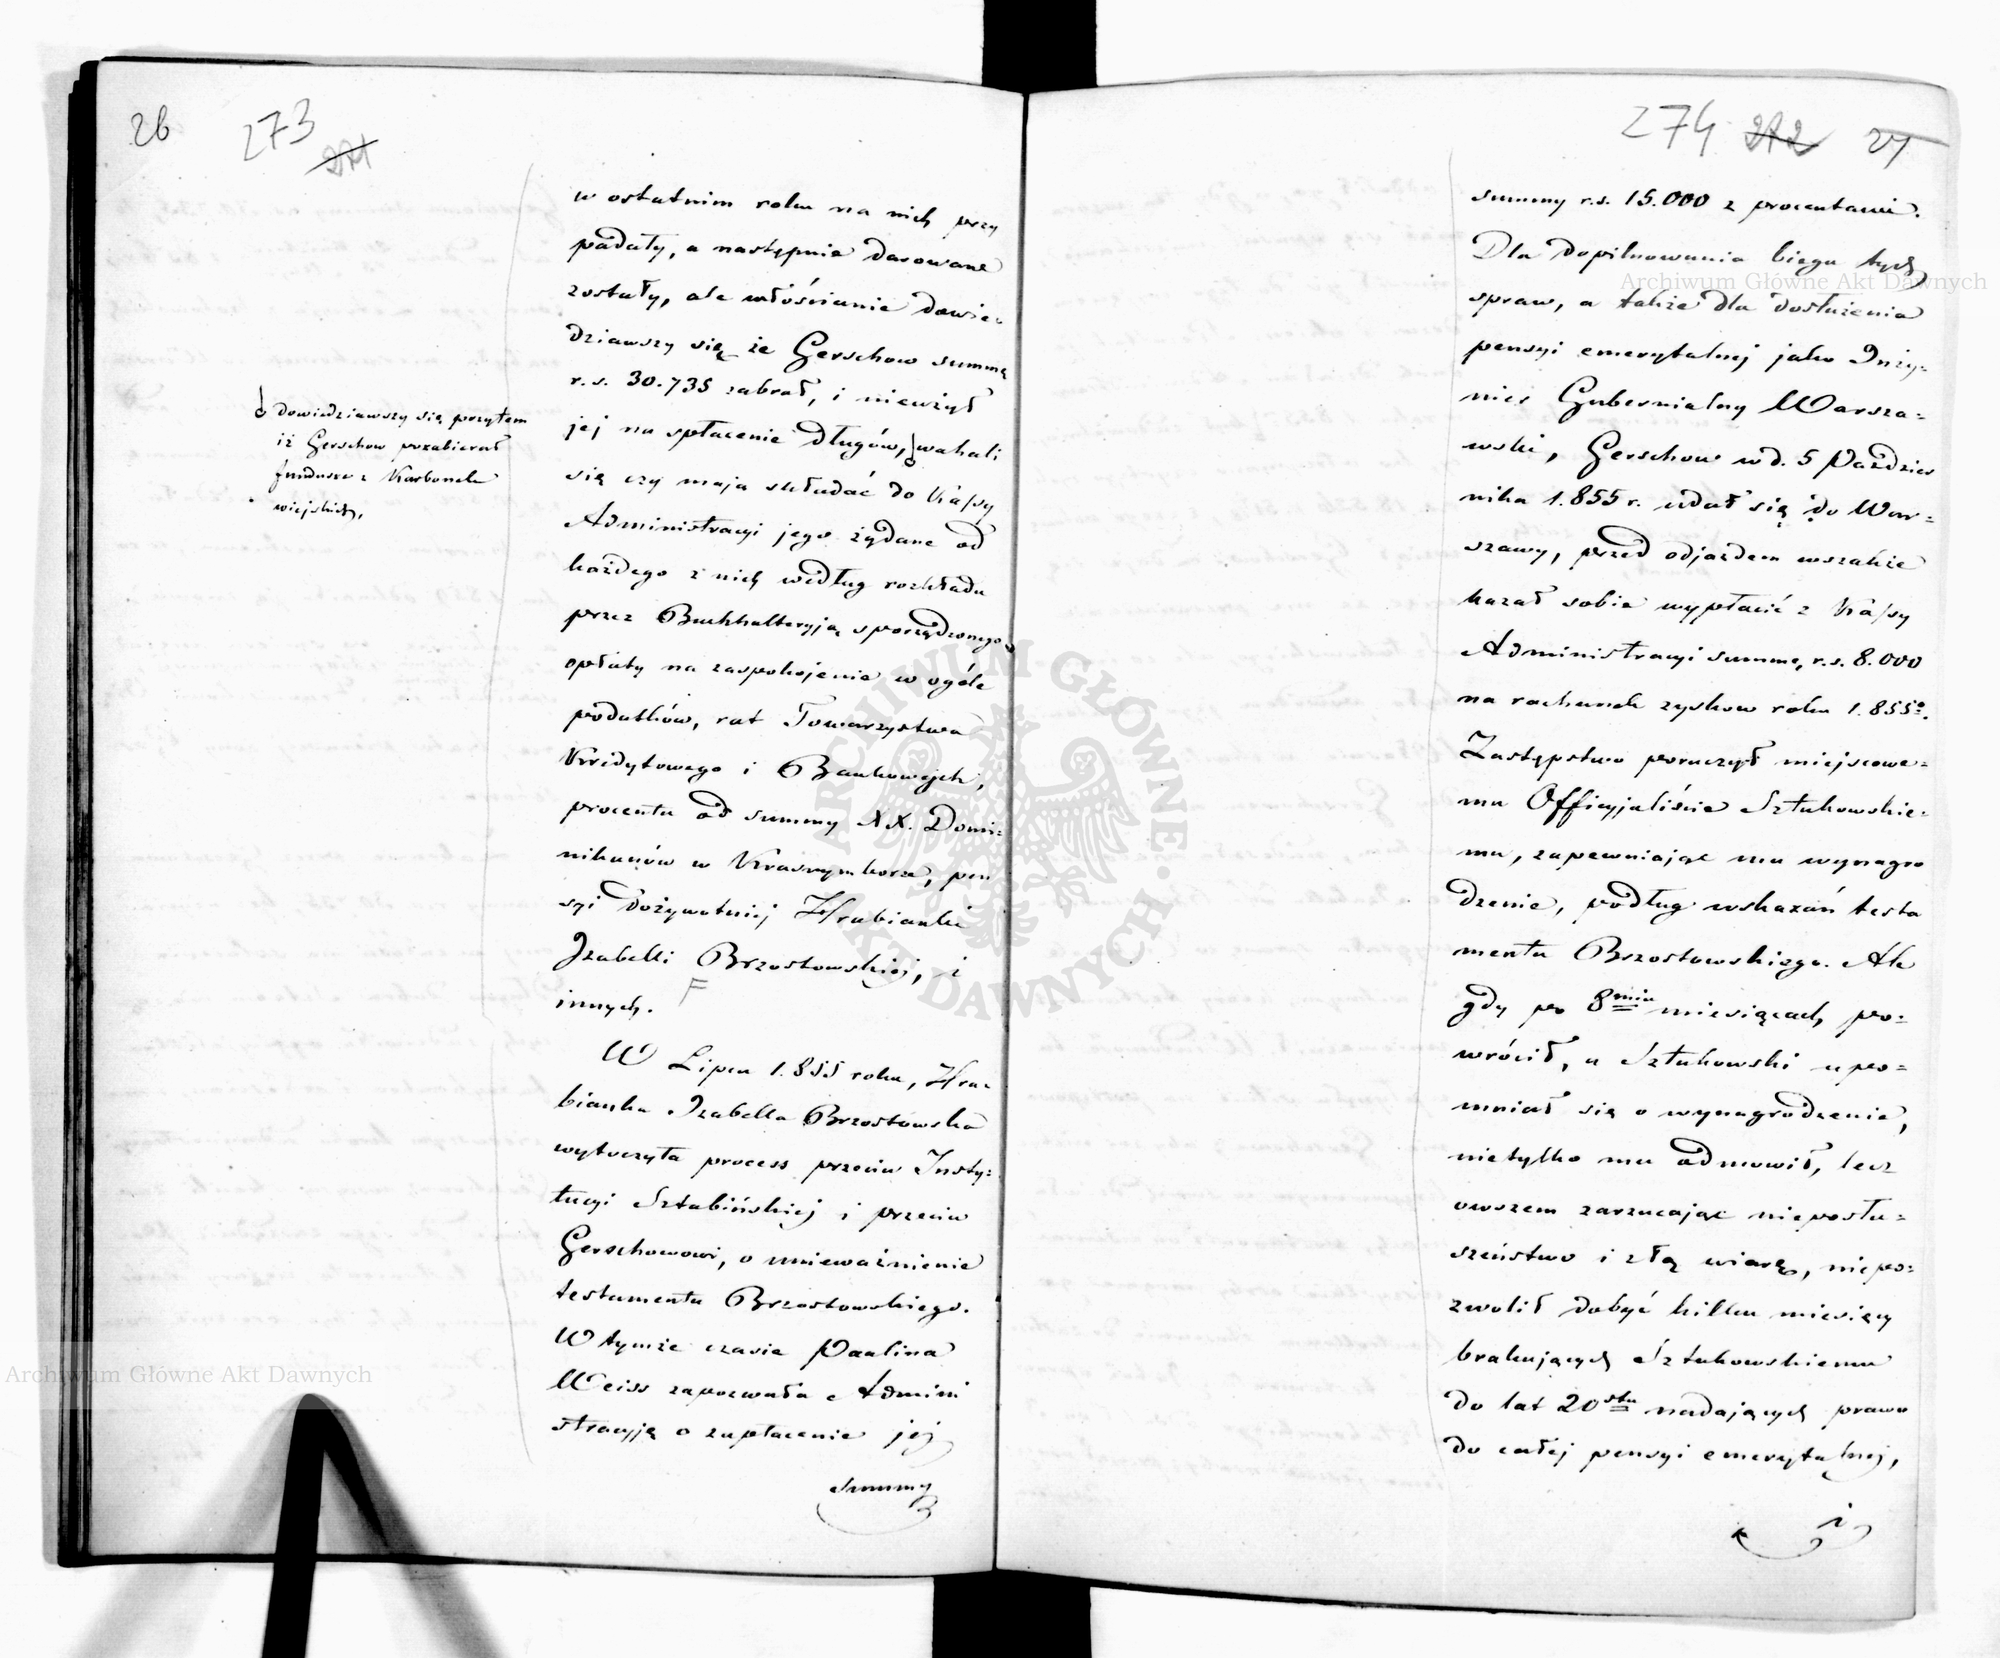 26
273
271
w ostatnim roku na nich przy
padały, a następnie darowane
zostały, ale włościanie dowie=
dziawszy się że Gerschow summę
r. s. 30.735 zabrał, i nieużył
jej na spłacenie długów, wahali
się czy maja składać do Kassy
Administracyi jego żądane od
każdego z nich według rozkładu
przez Buchhalteryją sporządzonego
opłaty na zaspokojenie w ogóle
podatków, rat Towarzystwa
Kredytowego i Bankowych,
procentu od summy XX. Domi=
nikanów w Krasnymborze, pen
syi dożywotniej Hrabianki
Izabelli Brzostowskiej, i
innych.
F
dowiedziawszy się przytem
iż Gerschow pozabierał
fundusze z Karbonek
wiejskich,
W Lipcu 1.855 roku, Hra=
bianka Izabella Brzostowska
wytoczyła process przeciw Insty=
tucyi Sztabińskiej i przeciw
Gerschowowi, o unieważnienie
testamentu Brzostowskiego.
W tymże czasie Paulina
Weiss zapozwała Admini
stracyją o zapłacenie jej
summy
274 272 27
summy r.s. 15.000 z procentami.
Dla dopilnowania biegu tych
spraw, a także dla dosłużenia
pensyi emerytalnej jako Inży=
nier Gubernialny Warsza=
wski, Gerschow w d. 5 Paździer
nika 1.855 r. udał się do War=
szawy, przed odjazdem wszakże
kazał sobie wypłacić z Kassy
Administracyi summę r.s. 8.000
na rachunek zysków roku 1.855o.
Zastępstwo poruczył miejscowe=
mu Officyjaliście Sztukowskie=
mu, zapewniając mu wynagro
dzenie, podług wskazań testa
mentu Brzostowskiego. Ale
gdy po 8miu miesiącach, po=
wrócił, a Sztukowski upo=
mniał się o wynagrodzenie,
nietylko mu odmówił, lecz
owszem zarzucając nieposłu=
szeństwo i złą wiarę, niepo=
zwolił dobyć kilku miesięcy
brakujących Sztukowskiemu
do lat 20stu nadających prawo
do całej pensyi emerytalnej,
i
Archiwum Główne Akt Dawnych
Archiwum Główne Akt Dawnych
ARCHIWUM GŁÓWNE AKT DAWNYCH